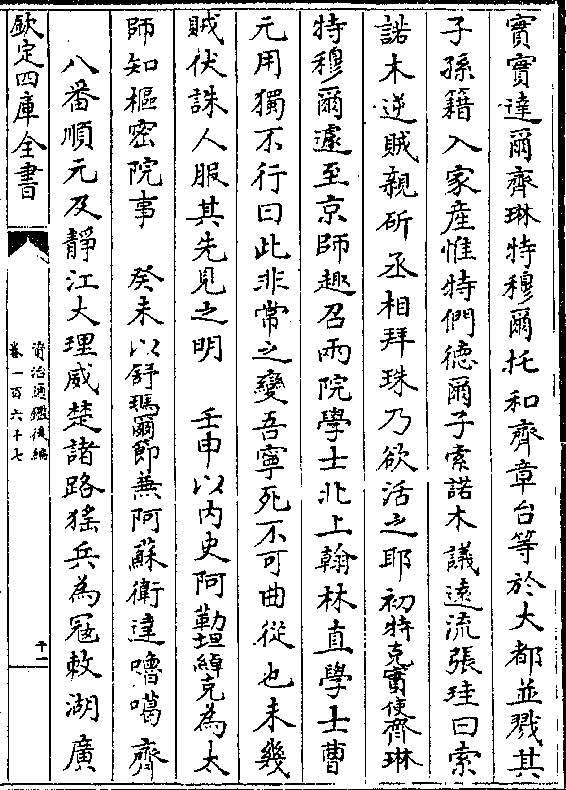 實實達爾齊琳特穆爾托和齊章台等於大都並戮其
子孫籍入家產惟特們德爾子索諾木議遠流張珪曰索
諾木逆賊親斫丞相拜珠乃欲活之耶初特克實使齊琳
特穆爾遽至京師趣召兩院學士北上翰林直學士曹
元用獨不行曰此非常之變吾寧死不可曲從也未幾
賊伏誅人服其先見之明　壬申以內史阿勒坦綽克為太
師知樞密院事　癸未以舒瑪爾節兼阿蘇衛達嚕噶齊
八番順元及靜江大理威楚諸路猺兵為冦敕湖廣
欽定四庫全書
資治通鑑後編
卷一百六十七
十一